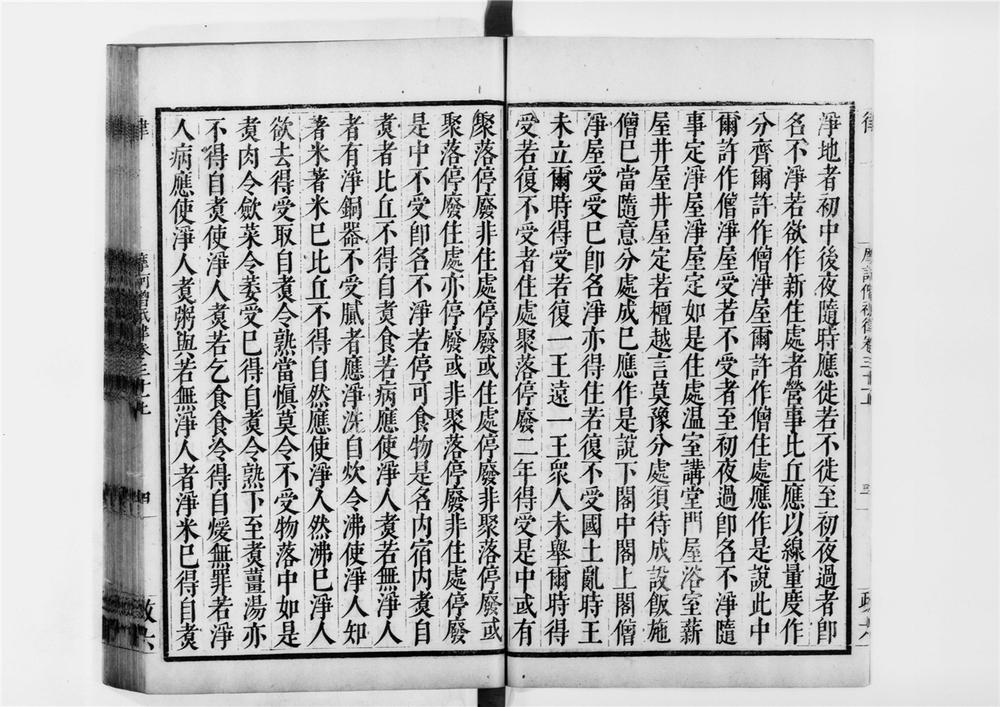 淨地者初中後夜隨時應徙若不徙至初夜過者卽
名不淨若欲作新住處者營事比丘應以線量度作
分齊爾許作僧淨屋爾許作僧住處應作是說此中
爾許作僧淨屋受若不受者至初夜過卽名不淨隨
事定淨屋淨屋定如是住處温室講堂門屋浴室薪
屋井屋井屋定若檀越言莫豫分處須待成設飯施
僧已當隨意分處成已應作是說下閣中閣上閣僧
淨屋受受已卽名淨亦得住若復不受國土亂時王
未立爾時得受若復一王遠一王衆人未舉爾時得
受若復不受者住處聚落停廢二年得受是中或有
聚落停廢非住處停廢或住處停廢非聚落停廢或
聚落停廢住處亦停廢或非聚落停廢非住處停廢
是中不受卽名不淨若停可食物是名内宿内煑自
煑者比丘不得自煑食若病應使淨人煑若無淨人
者有淨銅器不受膩者應淨洗自炊令沸使淨人知
著米著米已比丘不得自然應使淨人然沸已淨人
欲去得受取自煑令熟當慎莫令不受物落中如是
煑肉令歛菜令萎受已得自煑令熟下至煑薑湯亦
不得自煑使淨人煑若乞食食冷得自煖無罪若淨
人病應使淨人煑粥與若無淨人者淨米已得自煑
律
摩訶僧祇律卷三十一
四